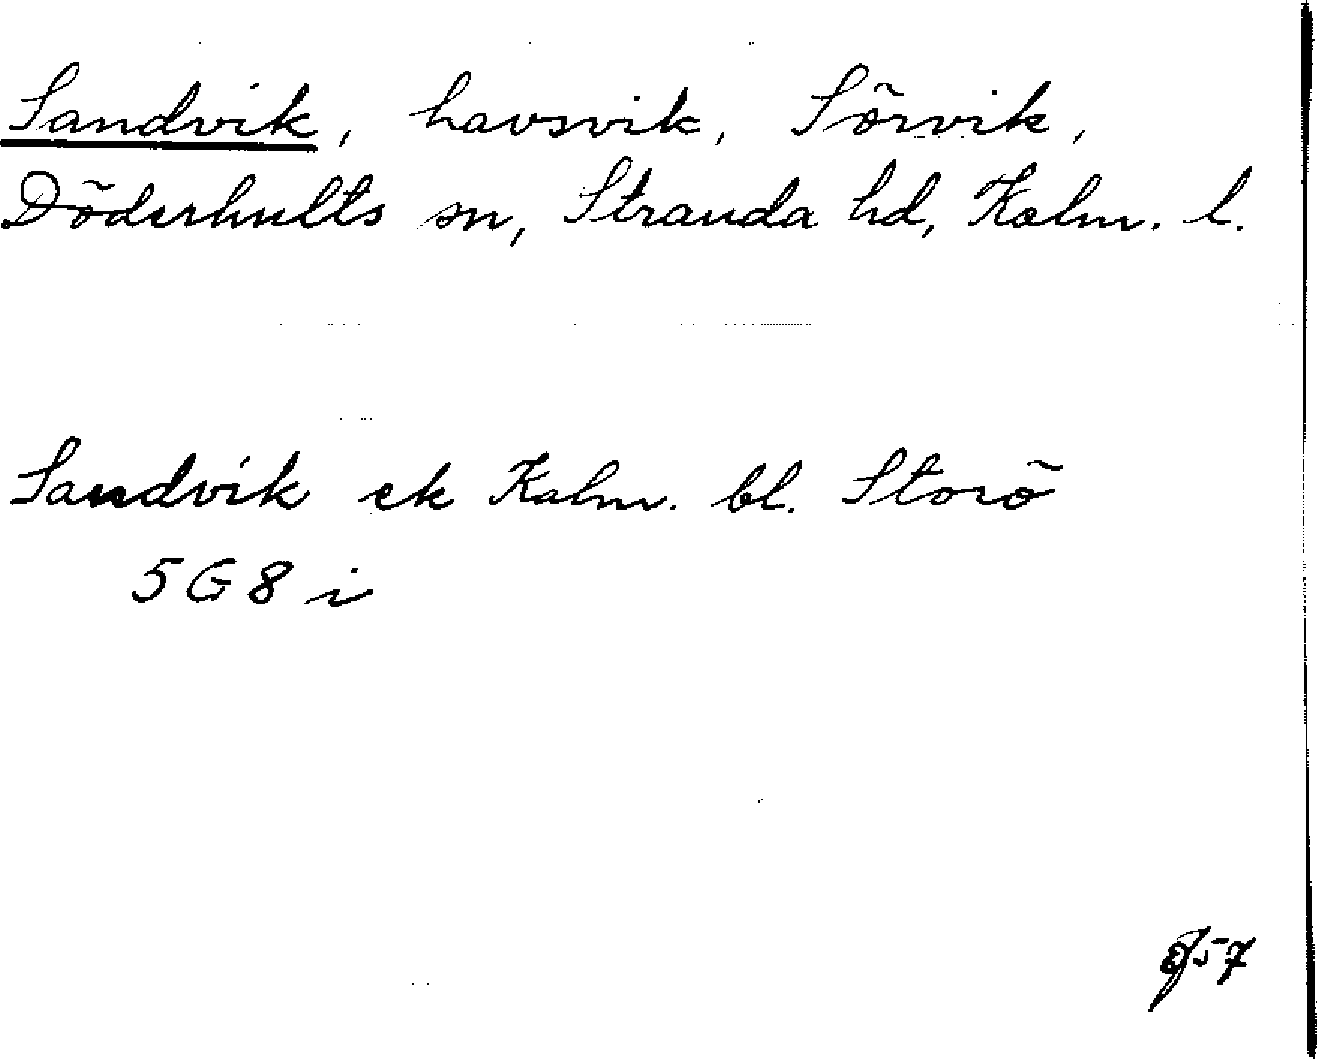 Sandvik, havsvik, Sörvik,
Döderhults sn, Stranda hd, Kalm. l.
Sandvik ek Kalm. bl. Storö
5G8i
57